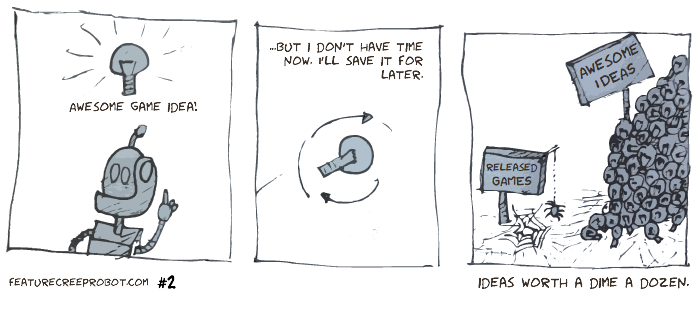 AWESOME GAME IDEA!
...BUT I DON'T HAVE TIME
NOW. I'LL SAVE IT FOR
LATER.
AWESOME
IDEAS
RELEASED
GAMES
FEATURECREEPROBOT.COM #2
IDEAS WORTH A DIME A DOZEN.